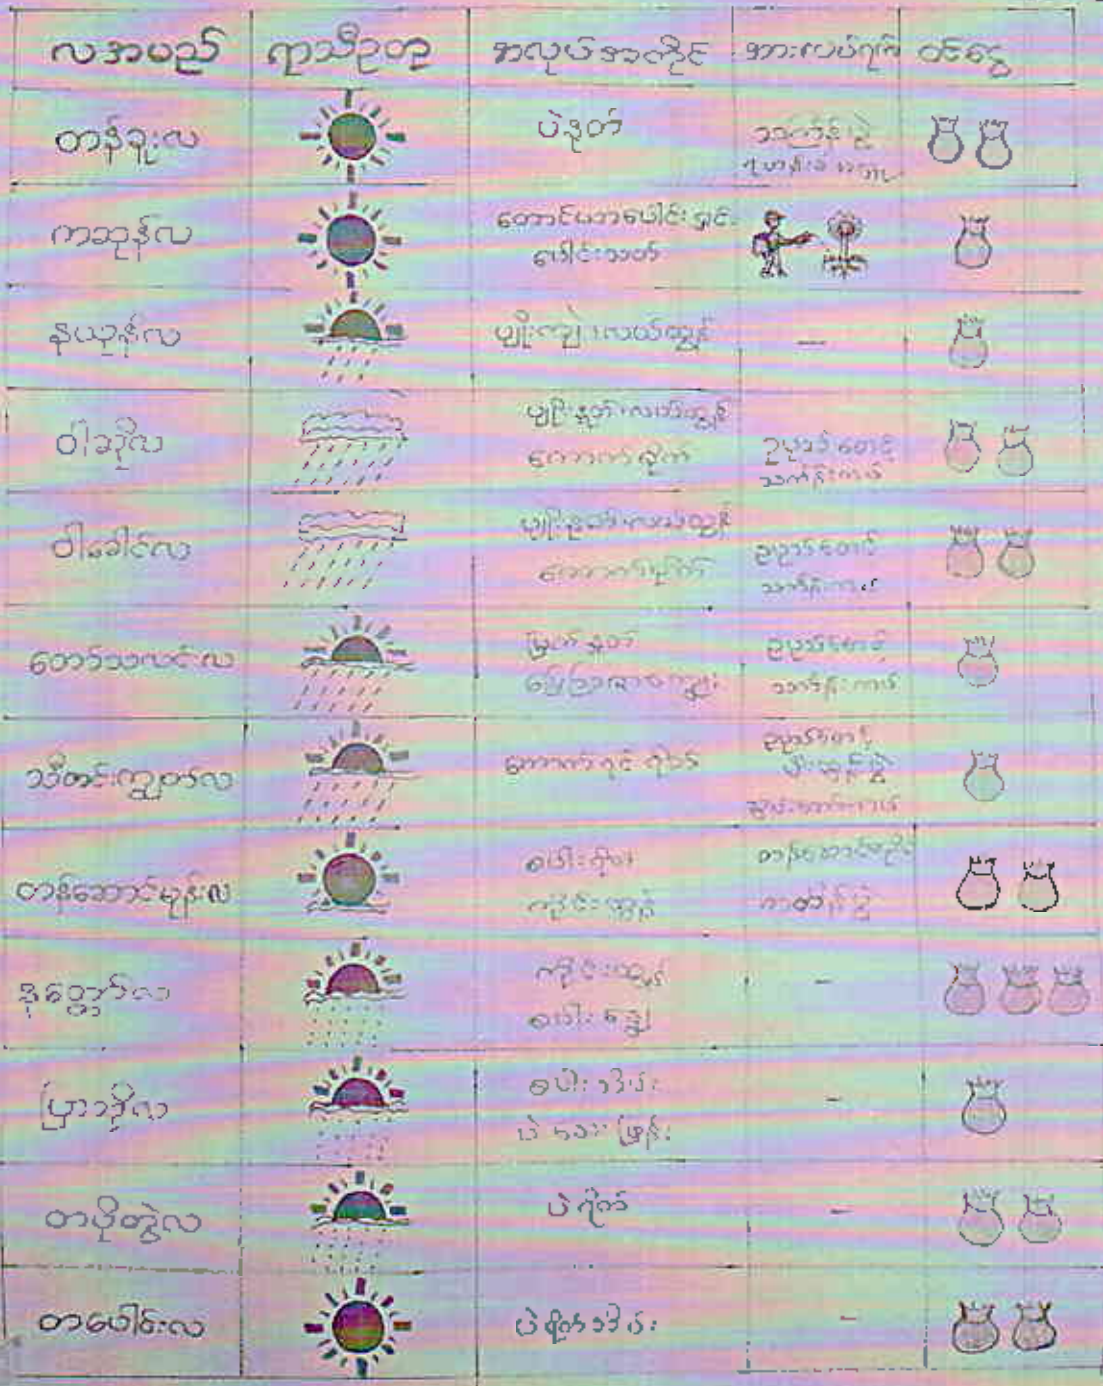 လအမည် ရာသီဥတု အလုပ်အကိုင် အားလပ်ရက် ဝင်ငွေ
တန်ခူးလ ပဲနုတ် သင်္ကြန်ပွဲ
ကဆုန်လ တောင်ယာပေါင်းရှင်း
ပေါင်းသတ်
နယုန်လ ပျိုးကျဲ၊ လယ်ထွန် —
ဝါဆိုလ ပျိုးနုတ် လယ်ထွန်
ကောက်စိုက် ဥပုသ်စောင့်
သက်ကြီးကန်
ဝါခေါင်လ ပျိုးနုတ် လယ်ထွန်
ကောက်စိုက် ဥပုသ်စောင့်
တော်သလင်းလ မြက်နုတ် ဥပုသ်စောင့်
သီတင်းကျွတ်လ ကောက်ရင်ရိတ် ဥပုသ်စောင့်
မီးထွန်းပွဲ
တန်ဆောင်မုန်းလ စပါးရိတ် တန်ဆောင်တိုင်
ကိုင်းထွန် ကထိန်ပွဲ
နတ်တော်လ ကိုင်းထွန် -
စပါးနွှေ့
ပြာသိုလ စပါးသိမ်း -
တပို့တွဲလ ပဲရိုက် -
တပေါင်းလ ပဲရိုက်သိမ်း -